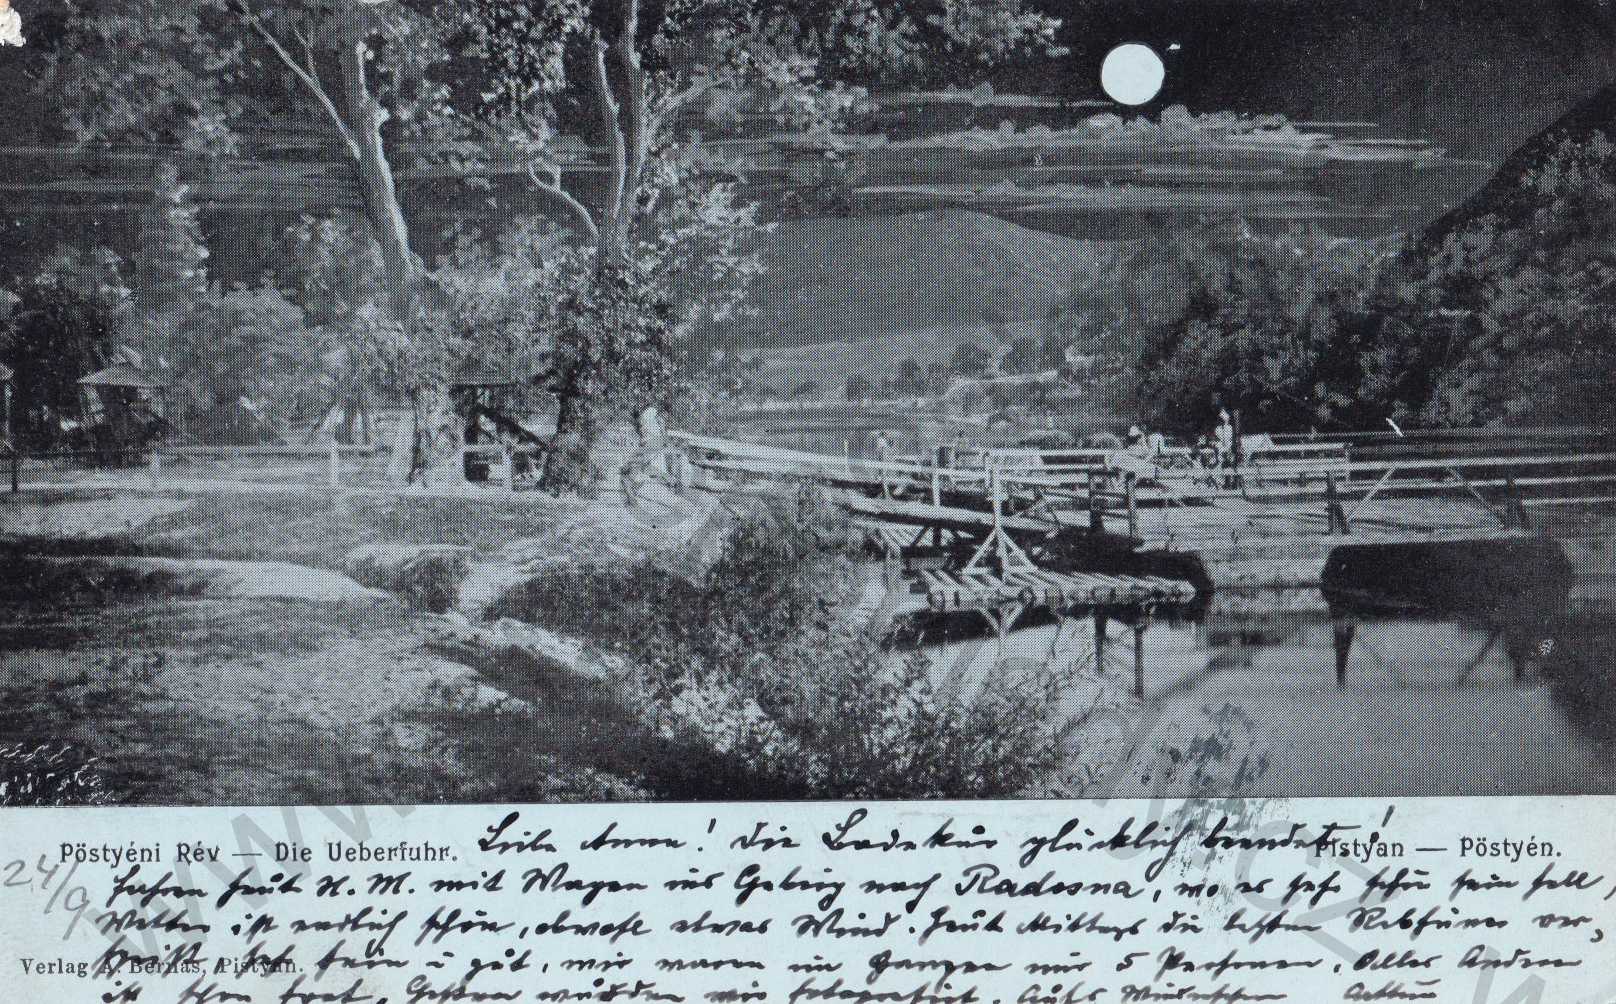 Pöstyéni Rév — Die Ueberfuhr. Pistyan — Pöstyén.
Liebe Anna! Die Badekur glücklich beendet,
24/9 fahren heut N. M. mit Wagen ins Gebirg nach Radosna, wo es sehr schön sein soll,
Wetter ist endlich schön, obwohl etwas Wind. Heut Mittags die letzten Rebhüner ver-
speist, fein u gut, wir waren im Ganzen nur 5 Personen. Alles Andere
Verlag A. Bernas, Pistyan.
ist schon fort. Gestern wurden wir fotografiert.